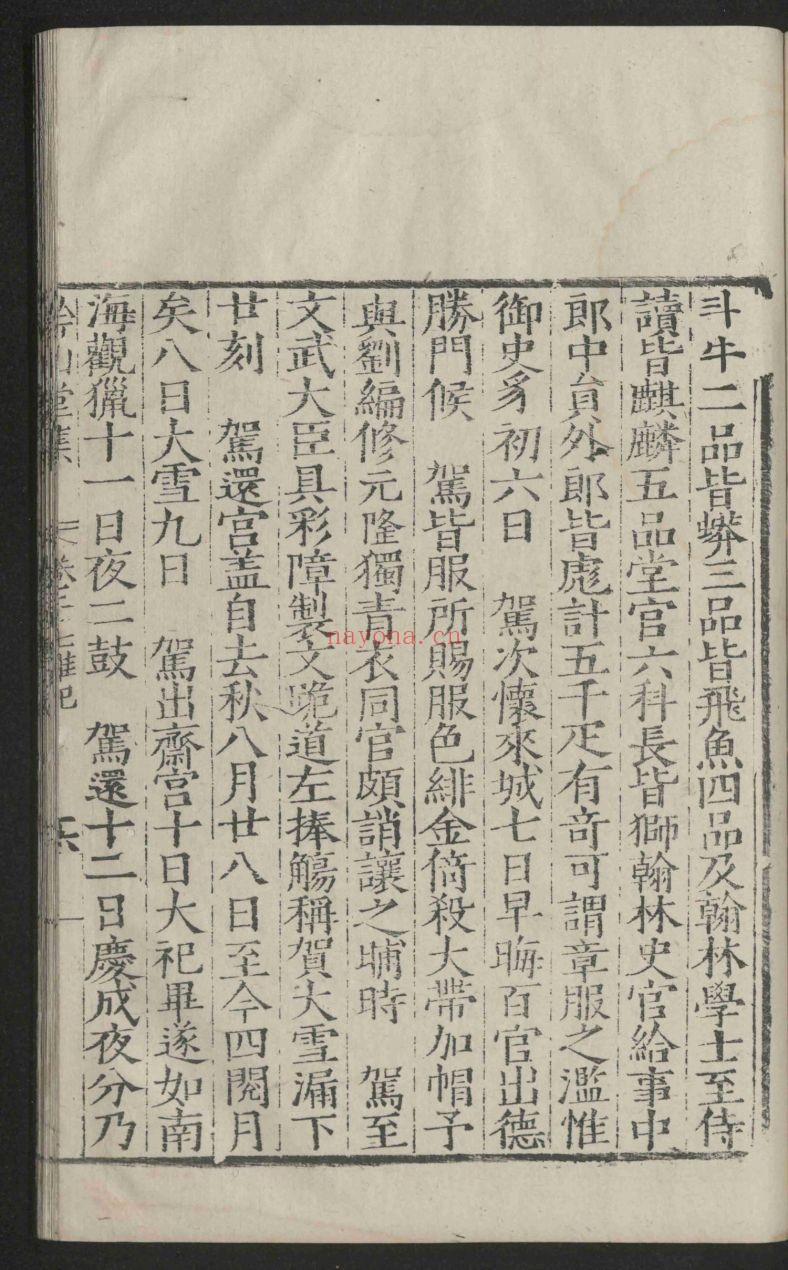 斗牛二品皆蟒三品皆飛魚四品及翰林學士至侍
讀皆麒麟五品堂官六科長皆獅翰林史官給事中
郎中貟外郎皆彪計五千疋有竒可謂章服之濫惟
御史豸初六日　駕次懷來城七日早晦百官出德
勝門候　駕皆服所賜服色緋金倚殺大帶加帽予
與劉編修元隆獨青衣同官頗誚讓之晡時　駕至
文武大臣具彩障製文跪道左捧觴稱賀大雪漏下
廿刻　駕還宫盖自去秋八月廿八日至今四閱月
矣八日大雪九日　駕出齋宫十日大祀畢遂如南
海觀獵十一日夜二鼓　駕還十二日慶成夜分乃
鈐山堂集　卷二十七雜記　六
nayona.cn